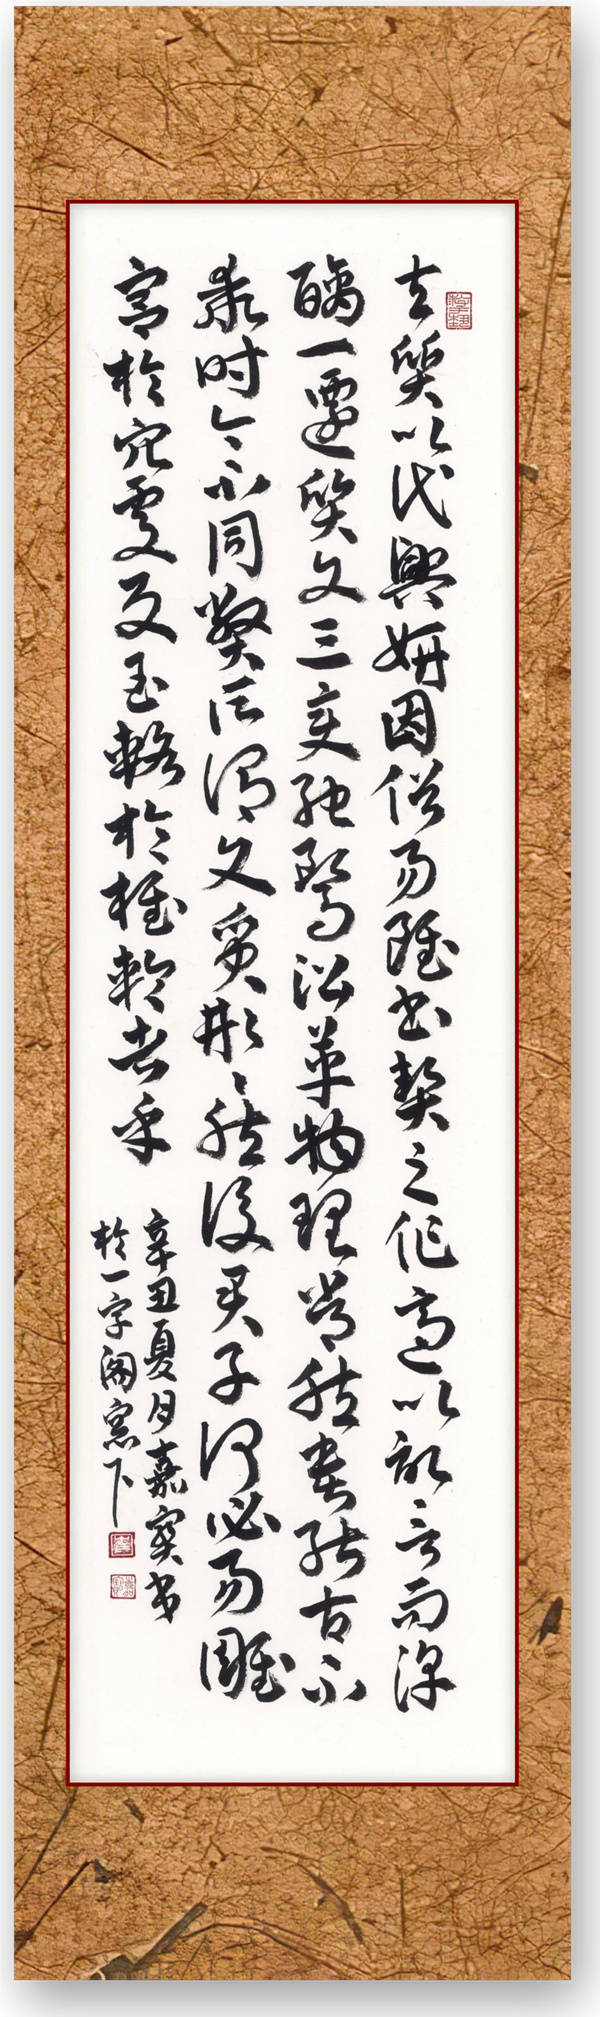 夫質以代興妍因俗易雖書契之作適以記言而淳
醨一遷質文三變馳騖沿革物理常然貴能古不
乖時今不同弊所謂文質彬彬然後君子何必易雕
宮於穴處反玉輅於椎輪者乎
辛丑夏月嘉實書
於一字閣窗下